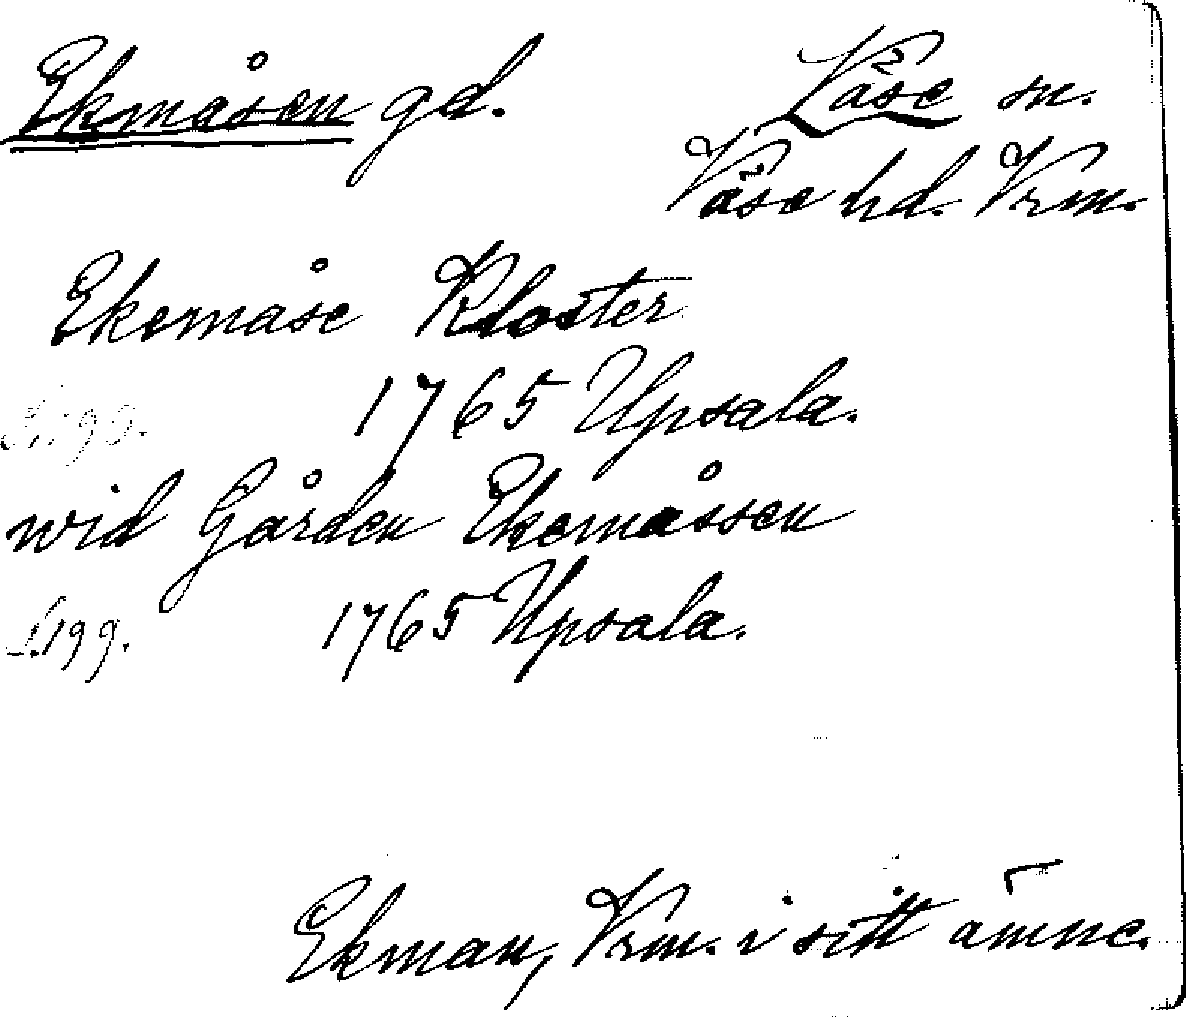 Ekmåsen gd. Väse sn.
Väse hd. Vrm.
Ekemåse Kloster
1765 Upsala.
S. 199.
wid Gården Ekemåssen
1765 Upsala.
S. 199.
Ekman, Vrm. i sitt ämne.